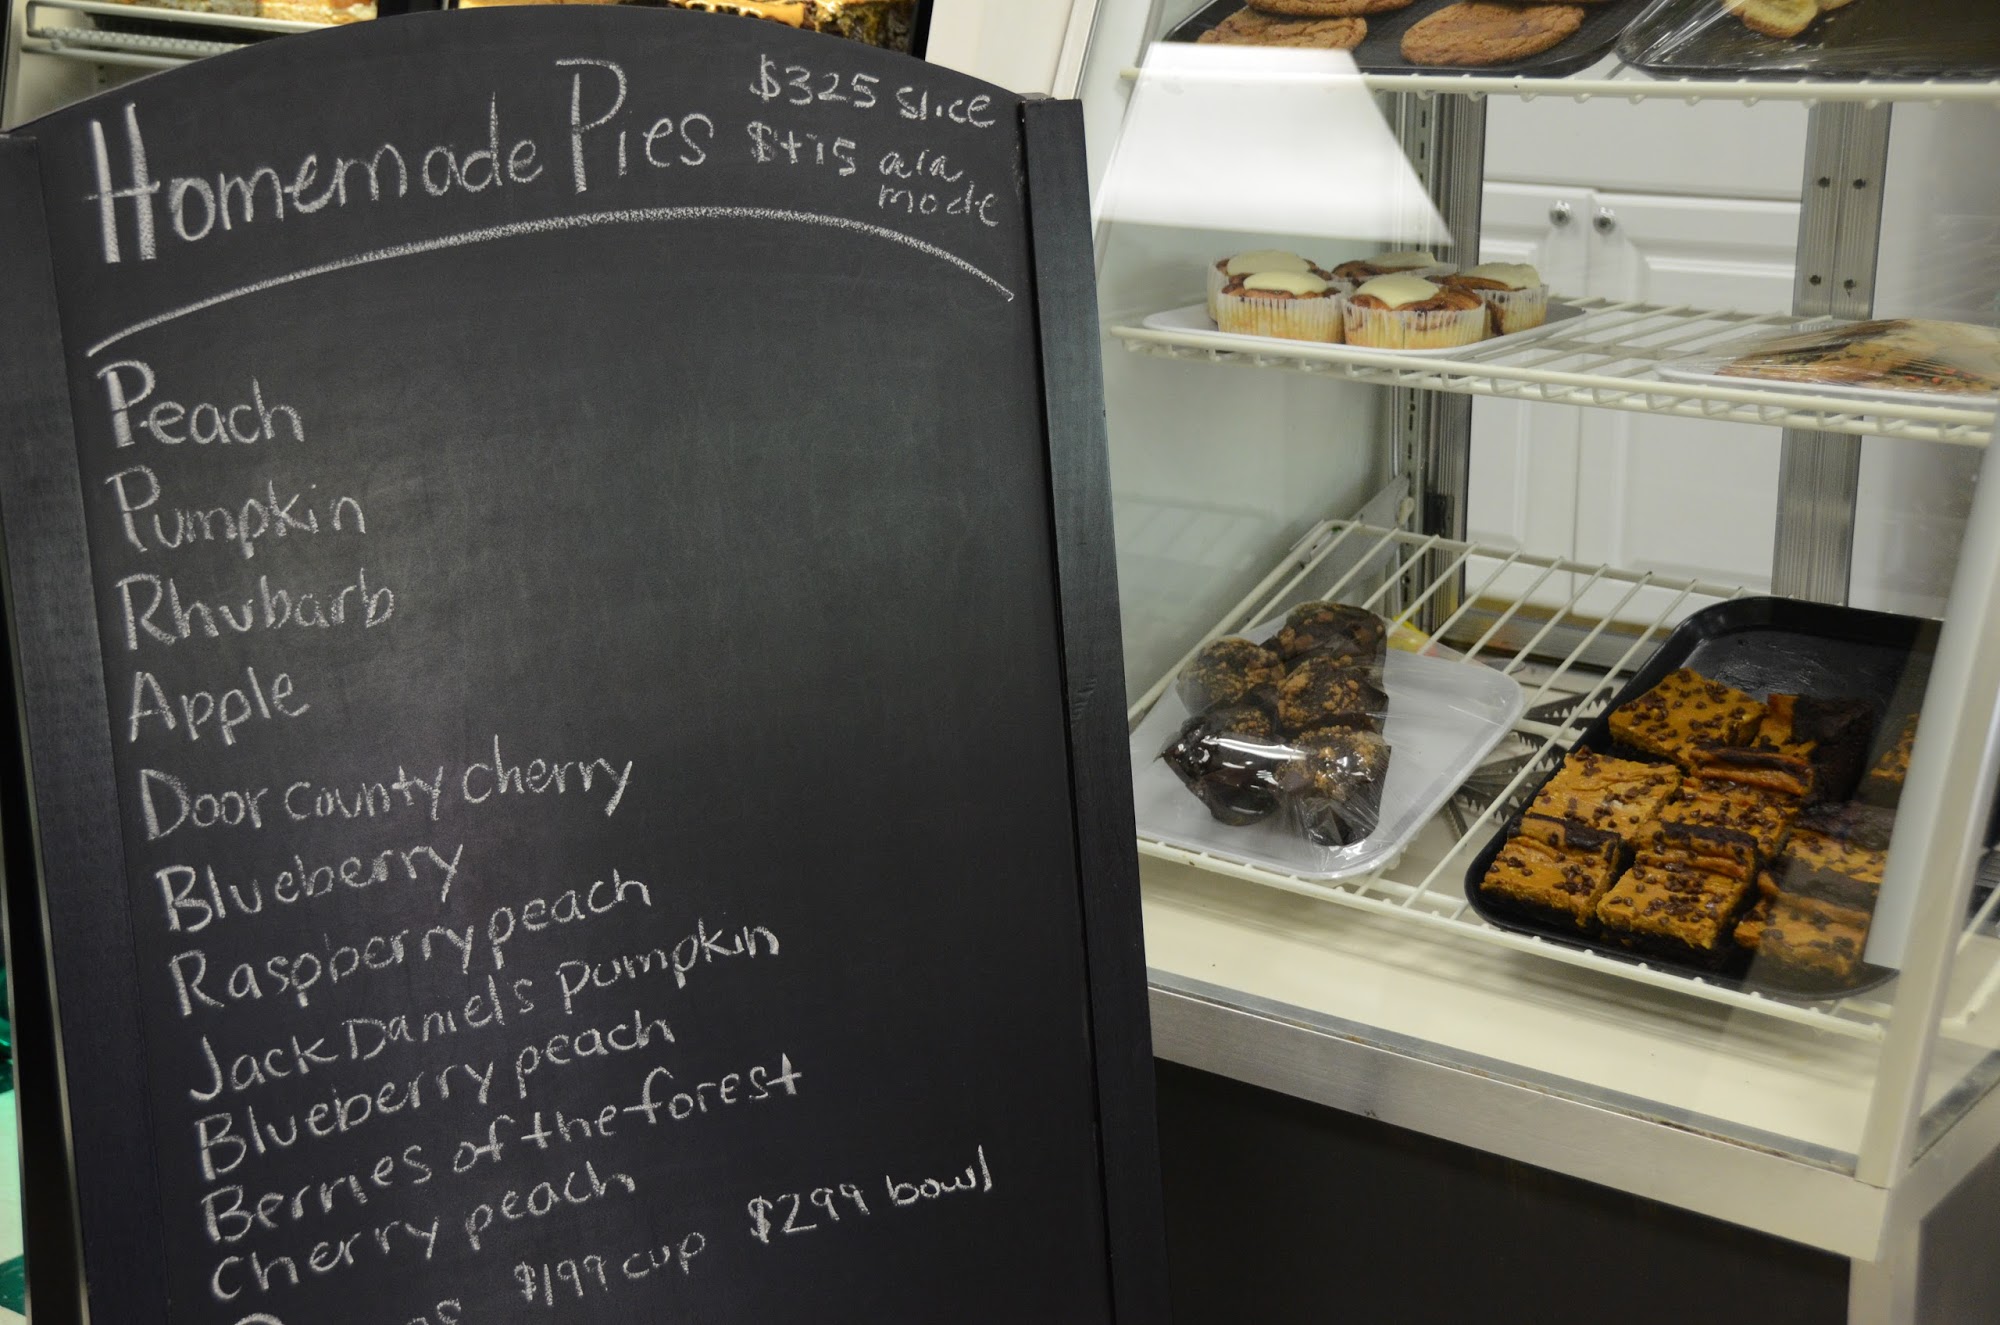 Homemade Pies $325 slice
$415 ala mode
Peach
Pumpkin
Rhubarb
Apple
Door county cherry
Blueberry
Raspberry peach
Jack Daniel's pumpkin
Blueberry peach
Berries of the forest
Cherry peach
$199 cup $299 bowl